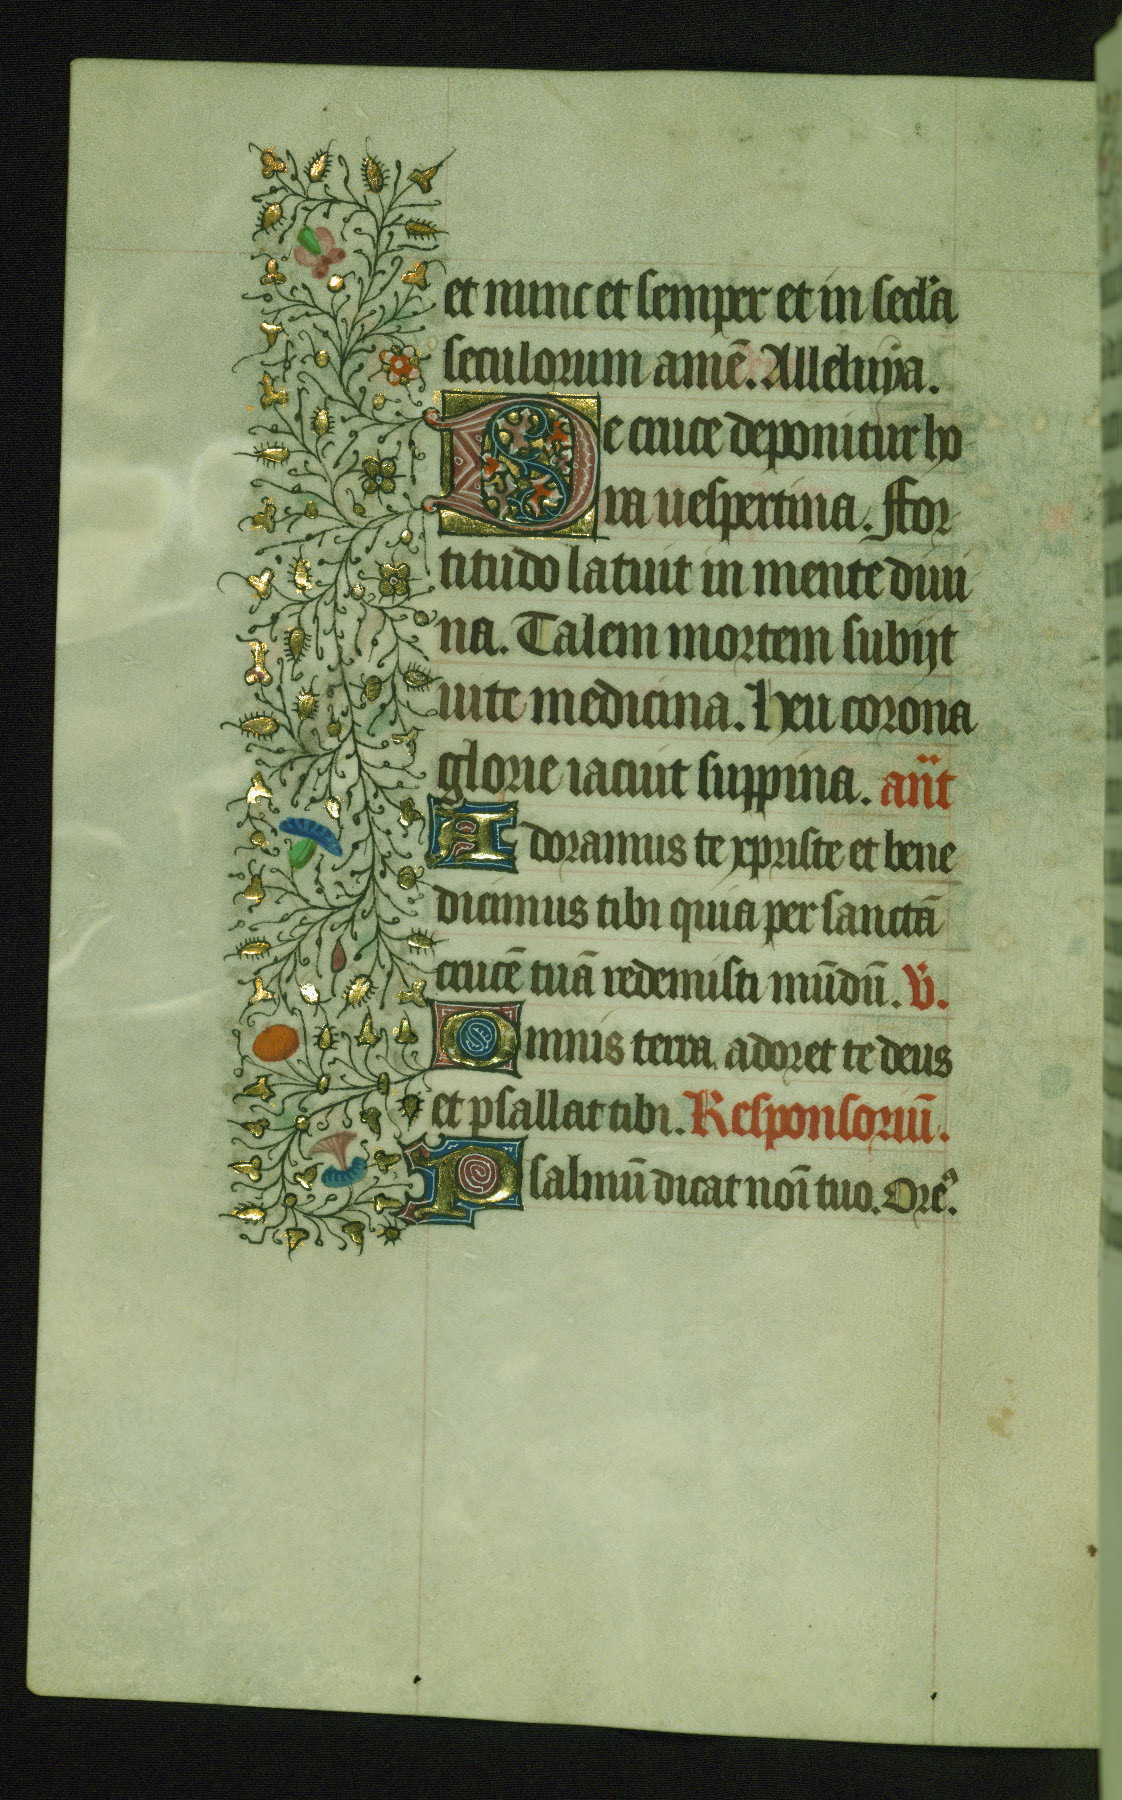 et nunc et semper et in secl'a
seculorum amē. Alleluya.
De cruce deponitur ho
ra uespertina. ffor
titudo latuit in mente diui
na. Talem mortem subijt
uite medicina. Heu corona
glorie iacuit suppina. añt
Adoramus te xpriste et bene
dicimus tibi quia per sanctā
crucē tuā redemisti mūdū. V̄.
Omnis terra adoret te deus
et psallat tibi. Responsoriū.
Psalmū dicat noī tuo. Orē⁹.